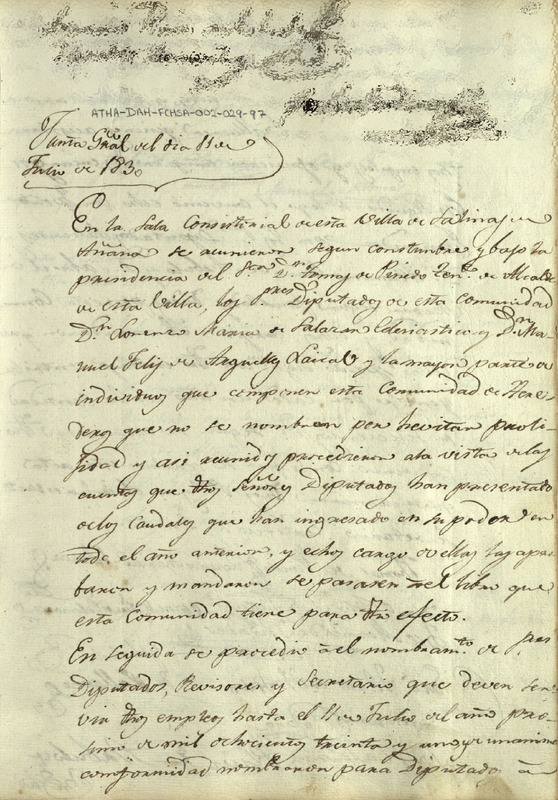 ATHA-DAH-FCHSA-002-029-97
Junta Gral del dia 11 de
Julio de 1830
En la Sala Consistorial de esta Villa de Salinas de
Añana se reunieron segun constumbre y bajo la
presidencia del Sor Dn Tomas de Pinedo Tente de Alcalde
de esta Villa, los Sres Diputados de esta Comunidad
Dn Lorenzo Maria de Salazar Eclesiastico y Dn Ma-
nuel Felis de Arguelles Laical y la mayor parte de
individuos que componen esta Comunidad de Here-
deros que no se nombran por hevitar proli-
sidad y asi reunidos procedieron a la vista de las
cuentas que dhos Señores Diputados han presentado
de los Caudales que han ingresado en su poder en
todo el año anterior, y echos cargo de ellas las apro-
baron y mandaron se pasasen al libro que
esta Comunidad tiene para dho efecto.
En seguida se procedio á el nombramto de Sres
Diputados, Revisores y Secretario que deven ser-
vir dhos empleos hasta el 11 de Julio del año pro-
simo de mil ochocientos treinta y uno y de unanime
comformidad nombraron para Diputado á